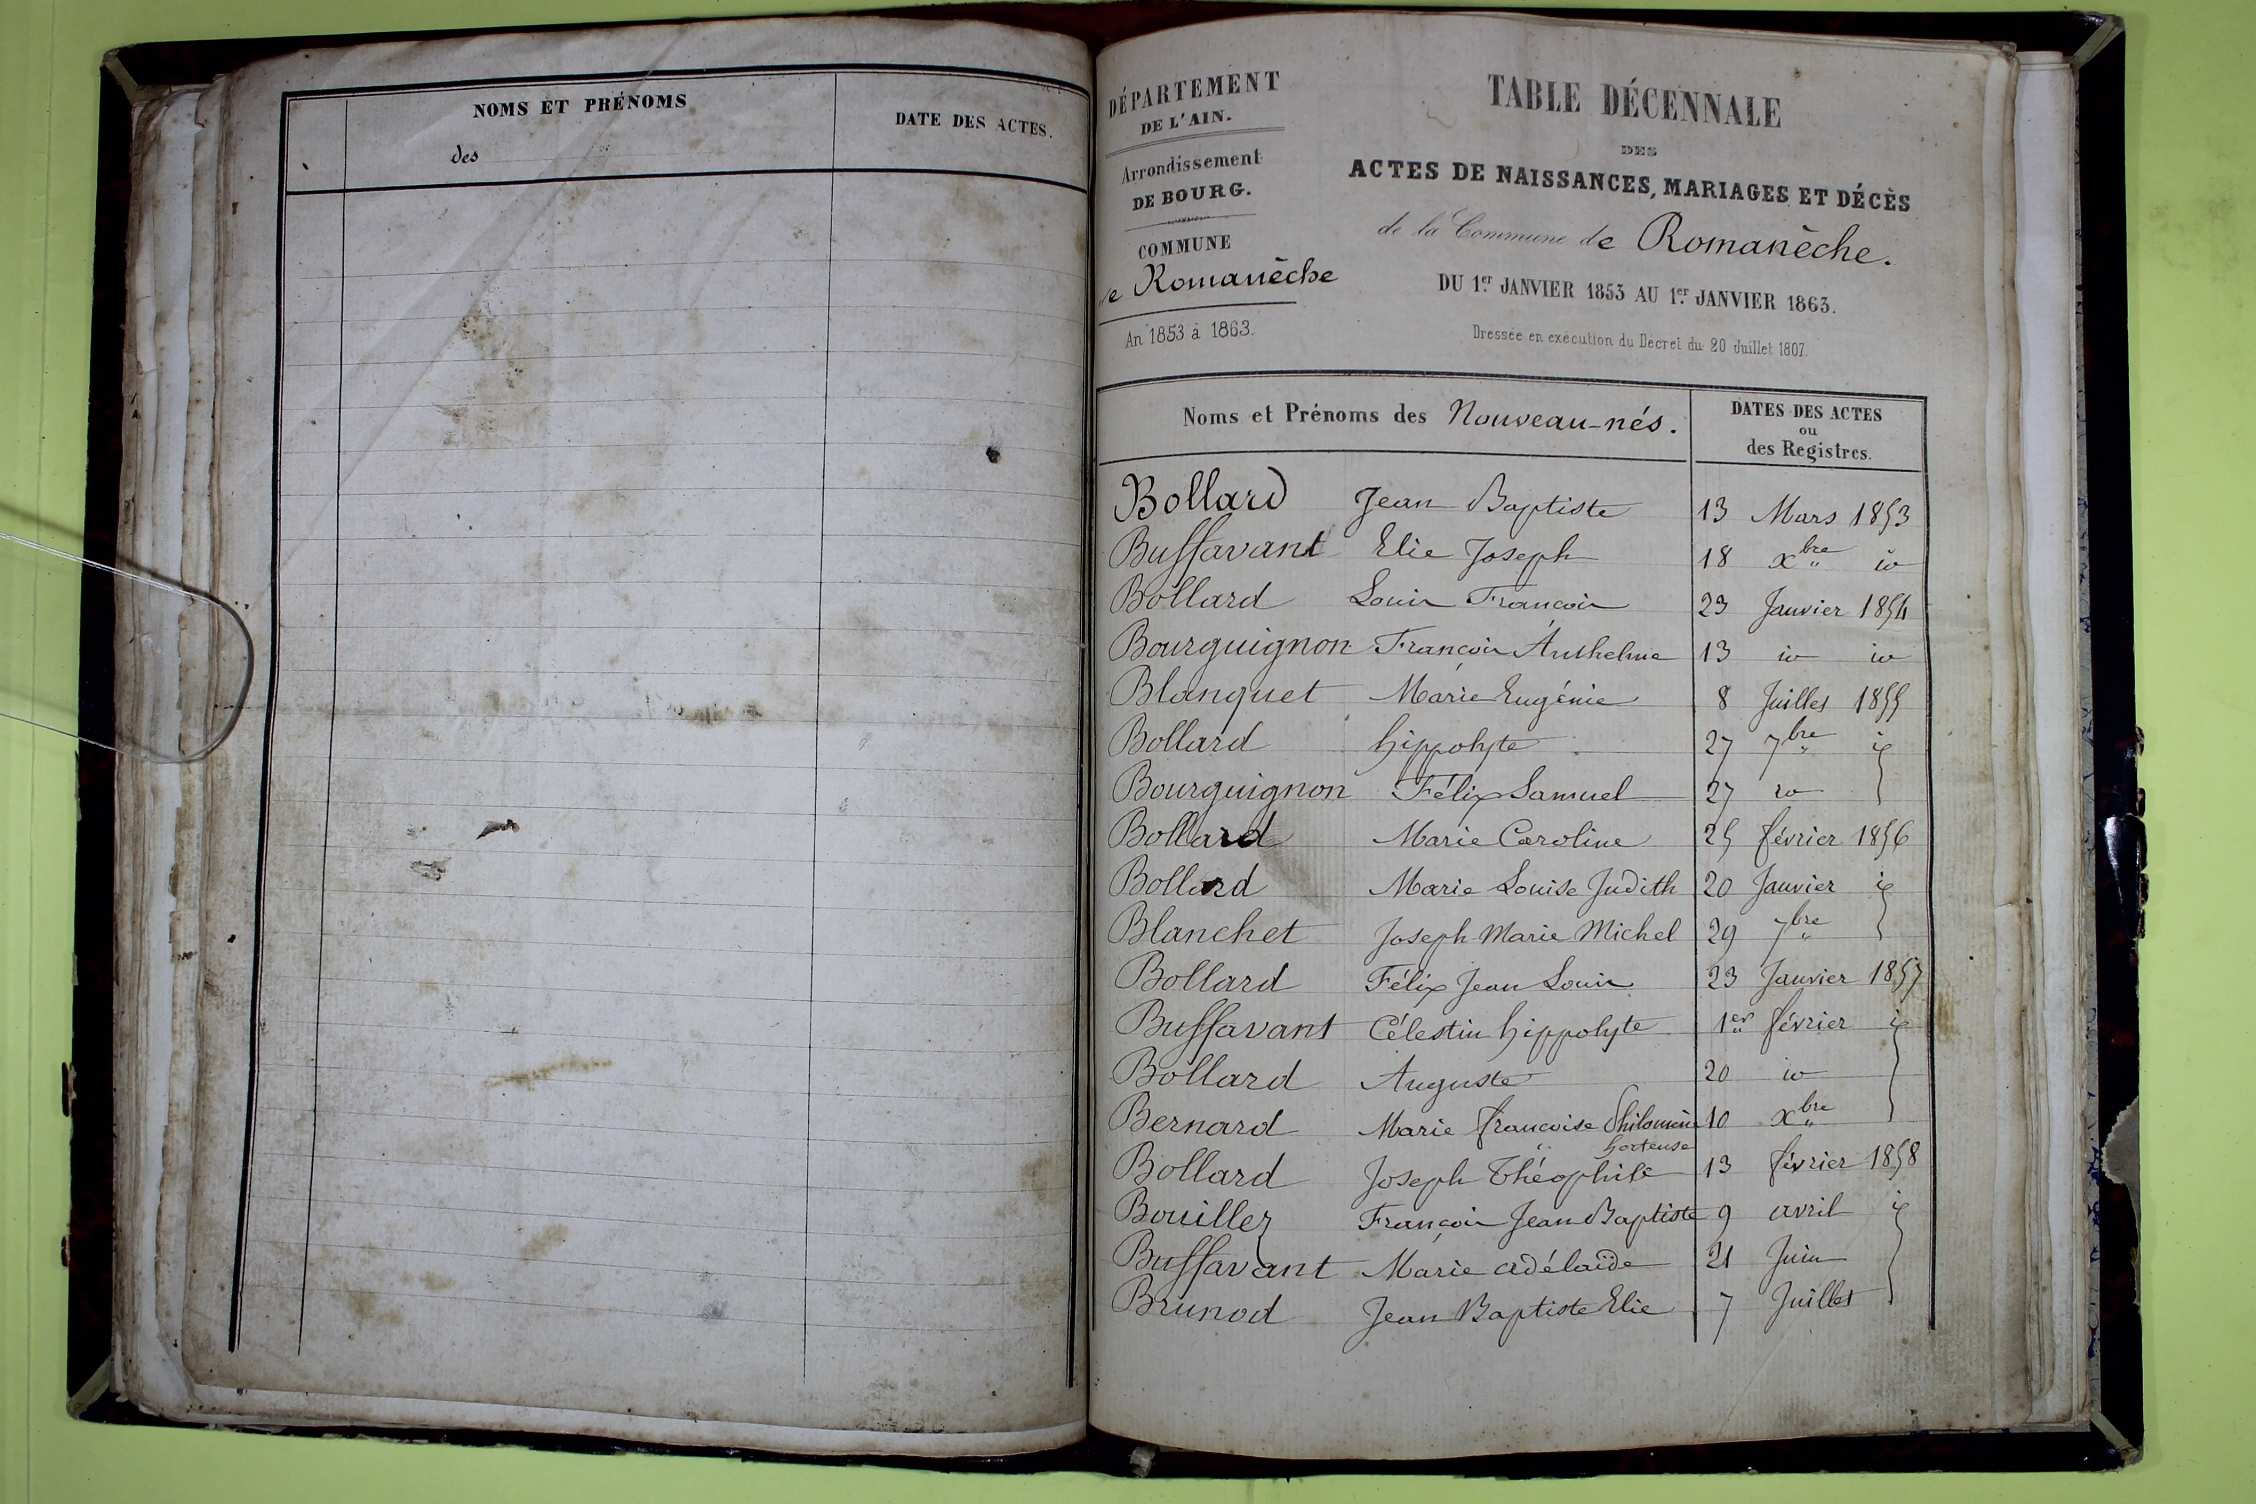 NOMS ET PRÉNOMS
des
DATE DES ACTES.
DÉPARTEMENT
DE L'AIN.
Arrondissement
DE BOURG.
COMMUNE
de Romanèche
An 1853 à 1863.
TABLE DÉCENNALE
DES
ACTES DE NAISSANCES, MARIAGES ET DÉCÈS
de la Commune de Romanèche.
DU 1er JANVIER 1853 AU 1er JANVIER 1863.
Dressée en exécution du Décret du 20 Juillet 1807.
Noms et Prénoms des Nouveau-nés.
DATES DES ACTES
ou
des Registres.
Bollard Jean Baptiste 13 Mars 1853
Buffavant Elie Joseph 18 xbre id
Bollard Louis François 23 Janvier 1854
Bourguignon François Anthelme 13 id id
Blanquet Marie Eugénie 8 Juillet 1855
Bollard hippolyte 27 7bre id
Bourguignon Félix Samuel 27 id
Bollard Marie Caroline 25 février 1856
Bollard Marie Louise Judith 20 Janvier id
Blanchet Joseph Marie Michel 29 7bre
Bollard Félix Jean Louis 23 Janvier 1857
Buffavant Célestin hippolyte 1er février id
Bollard Auguste 20 id
Bernard Marie françoise Philomène 10 xbre
hortense
Bollard Joseph Théophile 13 février 1858
Bouillez François Jean Baptiste 9 avril id
Buffavant Marie adélaïde 21 Juin
Brunod Jean Baptiste Elie 7 Juillet